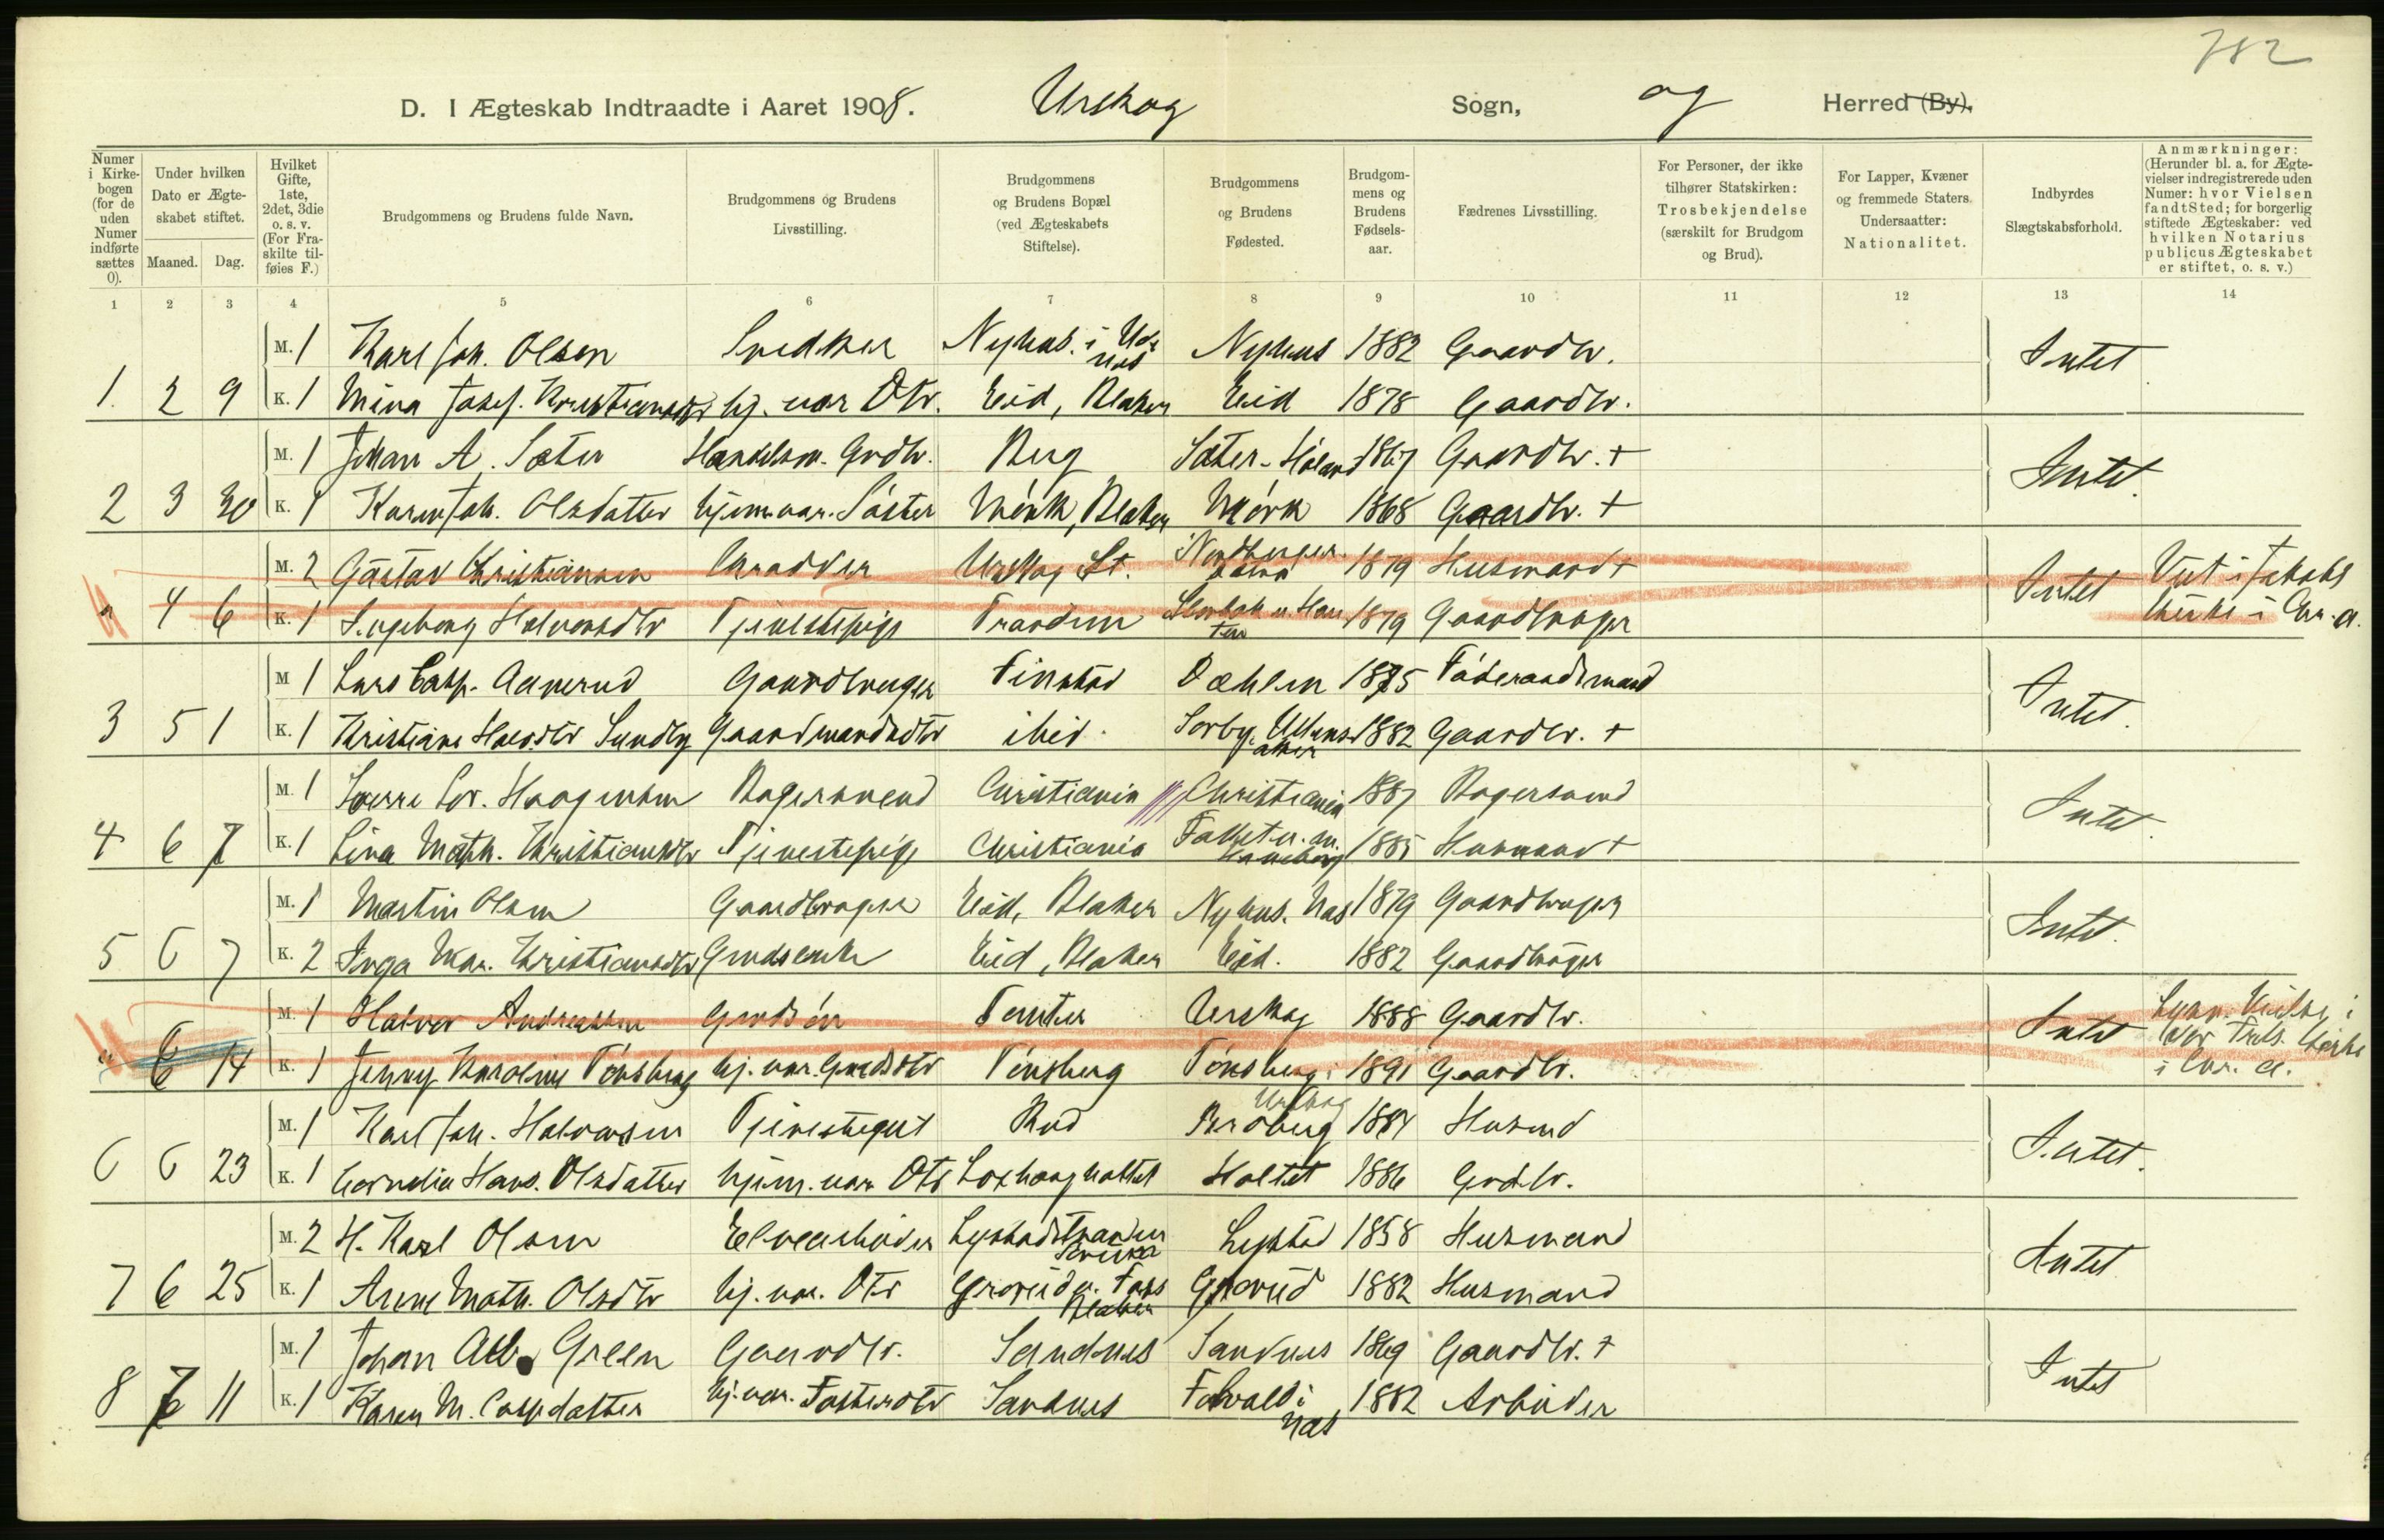 782
D. I Ægteskab Indtraadte i Aaret 1908. Urskog Sogn, og Herred (By).
Numer i Kirkebogen (for de uden Numer indførte sættes 0).
Under hvilken Dato er Ægteskabet stiftet.
Maaned. Dag.
Hvilket Gifte, 1ste, 2det, 3die o. s. v. (For Fraskilte tilføies F.)
Brudgommens og Brudens fulde Navn.
Brudgommens og Brudens Livsstilling.
Brudgommens og Brudens Bopæl (ved Ægteskabets Stiftelse).
Brudgommens og Brudens Fødested.
Brudgommens og Brudens Fødselsaar.
Fædrenes Livsstilling.
For Personer, der ikke tilhører Statskirken: Trosbekjendelse (særskilt for Brudgom og Brud).
For Lapper, Kvæner og fremmede Staters Undersaatter: Nationalitet.
Indbyrdes Slægtskabsforhold.
Anmærkninger: (Herunder bl. a. for Ægtevielser indregistrerede uden Numer: hvor Vielsen fandt Sted; for borgerlig stiftede Ægteskaber: ved hvilken Notarius publicus Ægteskabet er stiftet, o. s. v.)
1 2 3 4 5 6 7 8 9 10 11 12 13 14
M. 1 Karl Joh. Olsen Snedker Nyhus. i Nyhus 1882 Gaardbr. Intet
1. 2 9 K. 1 Mina Josef. hj. vær Dtr. Eid, Blaker Eid 1878 Gaardbr.
M. 1 Johan A. Sæter Handelsm. Grdbr. Berg Sæter - Høland 1867 Gaardbr. +
2 3 30 K. 1 Karen Joh. Olsdatter hjemmevær. Søster Mørk, Blaker Mørk 1868 Gaardbr. + Intet.
M. 2 Gustav Christiansen Urskog St. 1879 Husmand + Intet Viet i Jakobs
" 4 6 K. 1 Ingeborg Halvorsdtr Tjenestepige Trandum 1879 Gaardbruger Kirke i Chr.a.
M 1 Lars Casp. Aamerud Gaardbruger Finstad Dæhlen 1875 Føderaadsmand
3 5 1 K. 1 Kristiane Halv.dtr Sundby Gaardmandsdtr ibid. Sørby, Ullensaker 1882 Gaardbr. + Intet.
M. 1 Sverre Haagensen Bagersvend Christiania Christiania 1887 Bagersvend Intet.
4 6 7 K. 1 Lina Math. Kristiansdtr Tjenestepige Christiania 1885 Husmand +
M. 1 Martin Olsen Gaardbruger Eid, Blaker Nyhus. Næs 1879 Gaardbruger Intet.
5 6 7 K. 2 Inga Mar. Kristiansdtr Grdsenke Eid, Blaker Eid. 1882 Gaardbruger
M. 1 Halvor Andreassen Grdsøn Tomter Urskog 1888 Gaardbr. Intet
" 6 14 K. 1 Jenny Karoline Tønsberg hj. vær. Grdsdtr Tønsberg Tønsberg i Urskog 1891 Gaardbr. i Chr. a.
M. 1 Karl Joh. Halvorsen Tjenestegut Rud 1884 Husmd
6 6 23 K. 1 Cornelia Hans. Olsdatter hjem. vær Dtr Holtet 1886 Grdbr. Intet.
M. 2 H. Karl Olsen Lystad 1858 Husmand Intet
7 6 25 K. 1 Anne Math. Olsdtr hj. vær. Dtr Blaker 1882 Husmand
M. 1 Johan Alb. Green Gaardbr. Sandnes Sandnes 1869 Gaardbr. +
8 7 11 K. 1 Karen M. Caspdatter hj. vær. Fosterdtr Sandnes i Næs 1882 Arbeider Intet